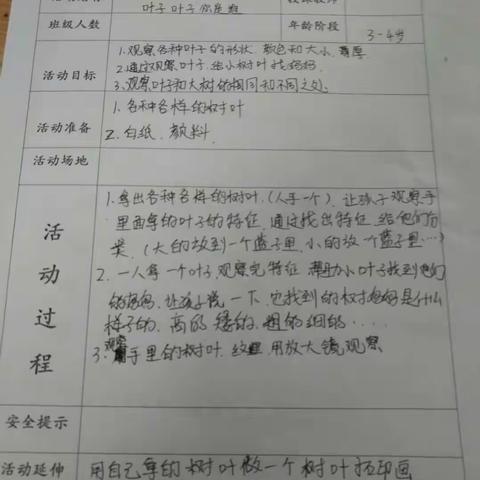 叶子叶子你是谁
班级人数
年龄阶段 3-4岁
活动目标
1.观察各种叶子的形状、颜色和大小、薄厚
2.通过观察叶子,给小树叶找妈妈.
3.观察叶子和大树的相同和不同之处.
活动准备
1.各种各样的树叶
2.白纸、颜料.
活动场地
活动过程
1.拿出各种各样的树叶.(人手一个).让孩子观察手
里面拿的叶子的特征,通过找出特征,给他们分
类.(大的放到一个盖子里,小的放一个盖子里…)
2.一人拿一个叶子,观察完特征,帮助小叶子找到他们
的妈妈,让孩子说一下,它找到的树妈妈是什么
样子的、高的 矮的、粗的 细的....
3.观察手里的树叶、纹理、用放大镜观察
安全提示
活动延伸
用自己拿的树叶做一个树叶拓印画